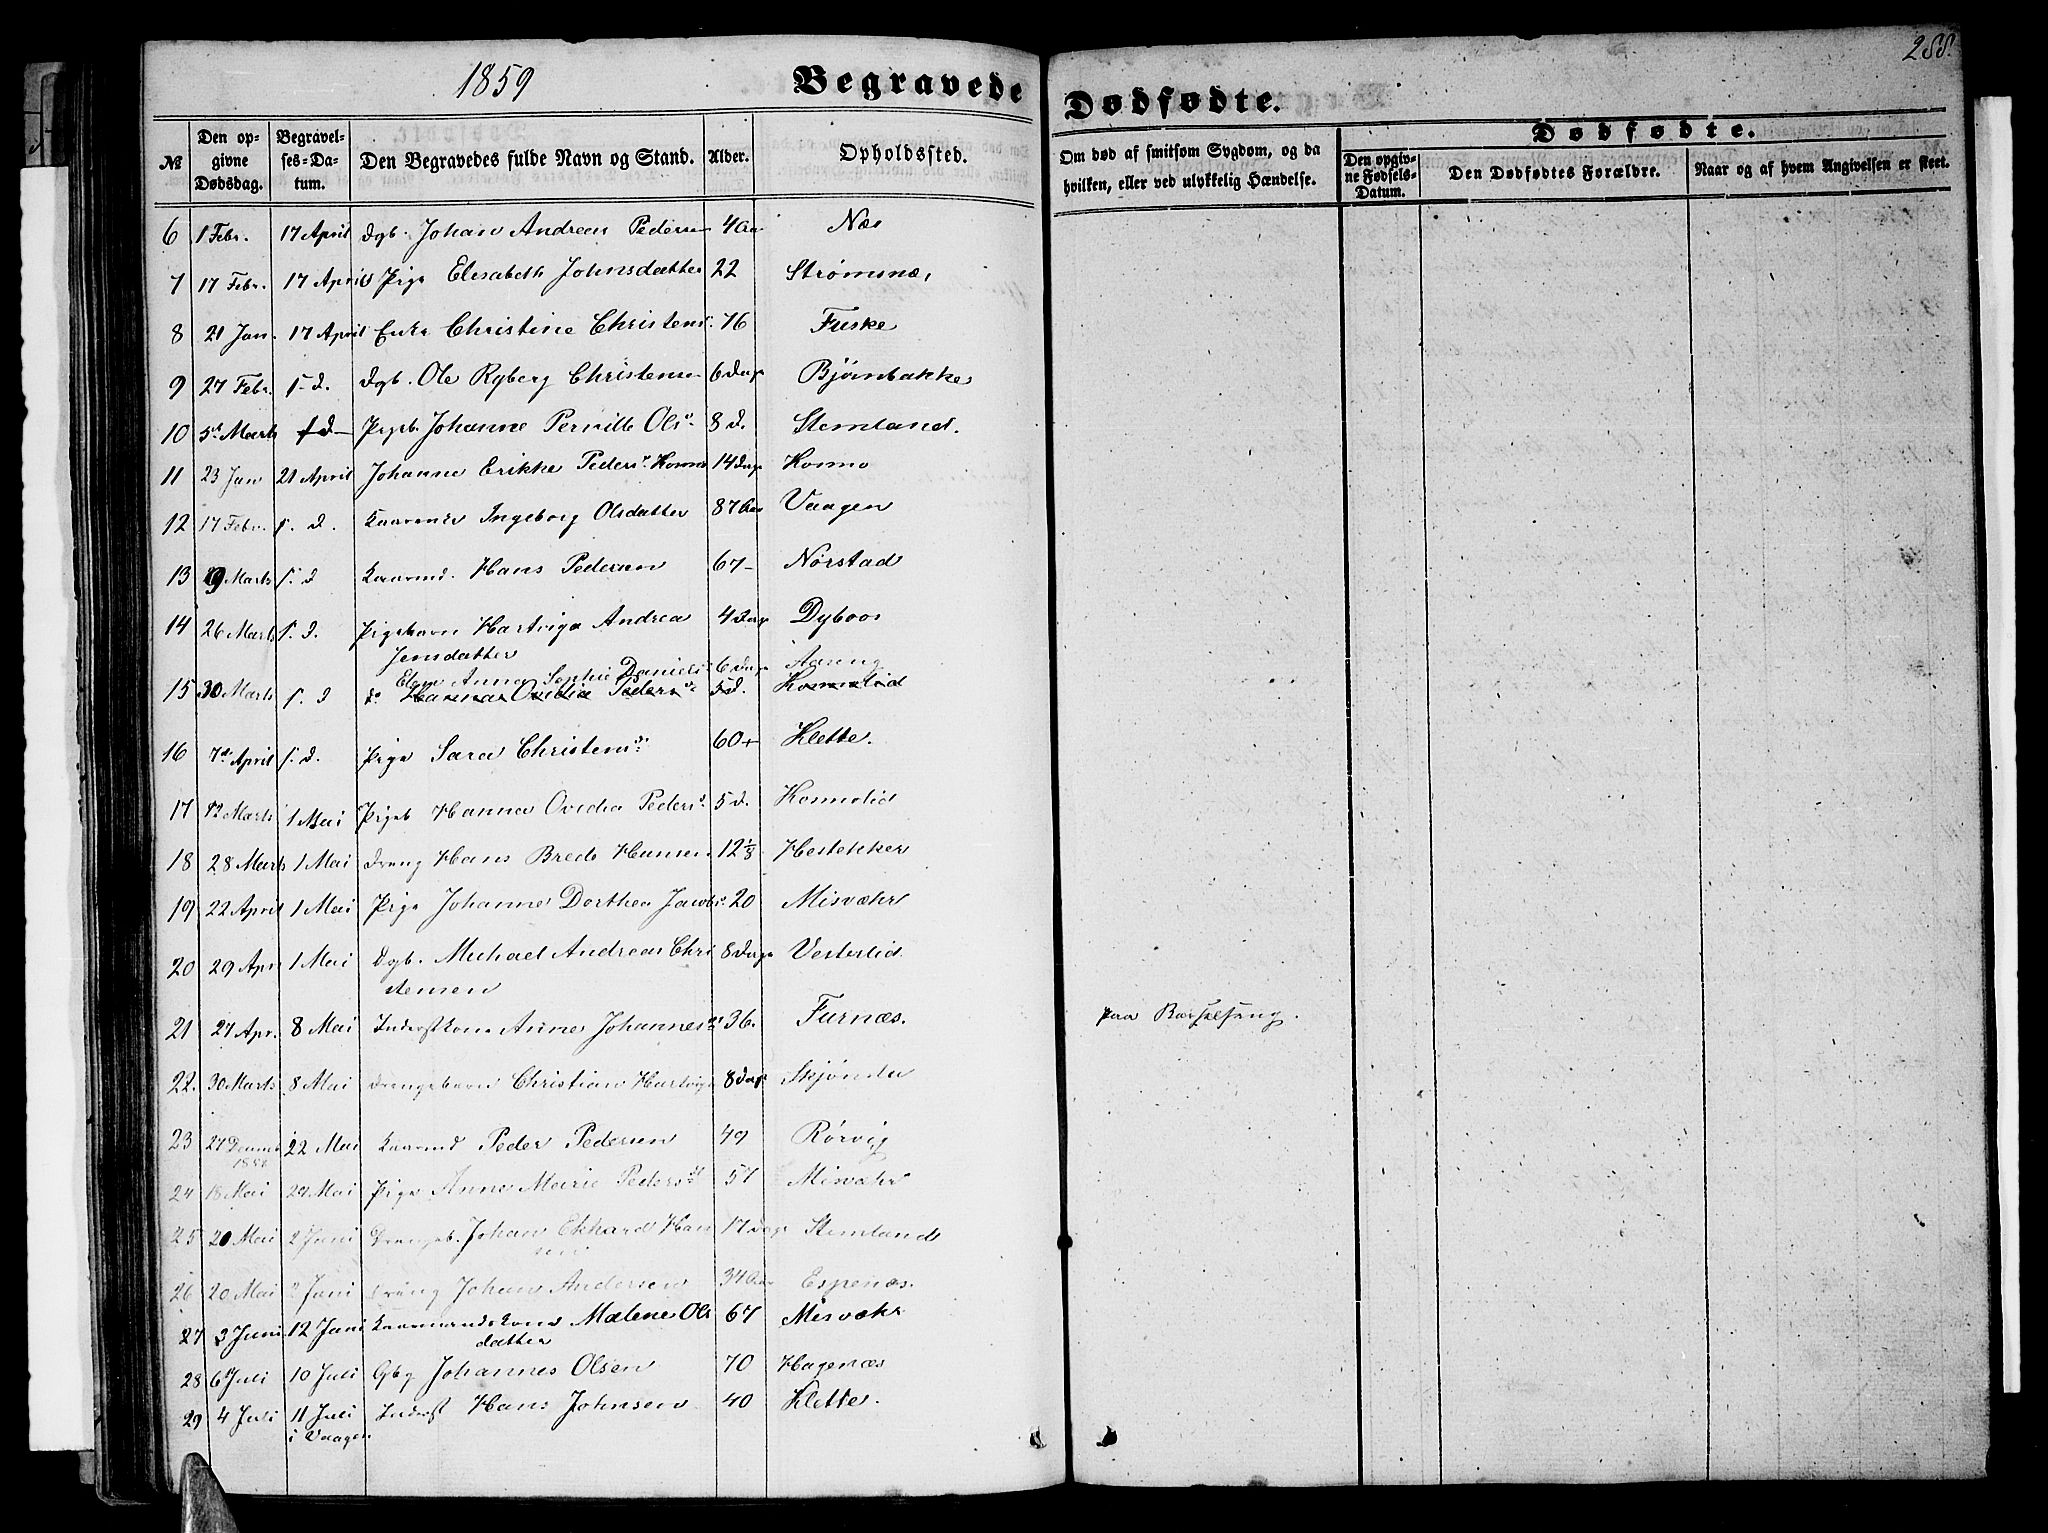 1859
Begravede
Dødfødte.
288.
Dødfødte.
№
Den op-
givne
Dødsdag.
Begravel-
ses-Da-
tum.
Den Begravedes fulde Navn og Stand.
Alder.
Opholdssted.
Om død af smitsom Sygdom, og da
hvilken, eller ved ulykkelig Hændelse.
Den opgiv-
ne Fødsels-
Datum.
Den Dødfødtes Forældre.
Naar og af hvem Angivelsen er skeet.
6 1 Febr. 17 April Dgb. Johan Andreas Pedersen 4 Aar Næs
7 17 Febr. 17 April Pige Elisabeth Johnsdatter 22 Strømsnæs
8 21 Jan. 17 April Enke Christine Christens 76 Fuske
9 27 Febr. s. d. Dgb. Ole Ryberg Christensen 6 Dage Bjørnbakke
10 5 Marts s. d. Pigeb. Johanne Pernille Ols 8 d. Stemland.
11 23 Jan 21 April Johanne Erikke Peders 14 Dage Kosmo
12 17 Febr. s. d. Ingeborg Olsdatter 87 Aar Vaagen
13 9 Marts s. d Kaarmd. Hans Pedersen 67 Nørstad
14 26 Marts s. d. Pigebarn Hartviga Andrea 4 Dage Dyboos
Jensdatter
Elen Anna Sophie Daniels 6 Dage Aaseng
15 30 Marts s. d do Hanna Ovidia Peders 5 d. Kosmolid
16 7 April s. d. Pige Sara Christens 60 Klette.
17 12 Marts 1 Mai Pigeb Hanna Ovidia Peders 5 d. Kosmolid
18 28 Marts 1 Mai Dreng Hans Brede Hansen 12⅓ Hestekker
19 22 April 1 Mai Pige Johanne Dorthea Jacobs 20 Misvæhr
20 29 Apr 1 Mai Dgb. Michael Andreas Chri 8 Dage Vesterlid
stensen
21 27 Apr. 8 Mai Inderstkone Anne Johannes 36. Furnæs. paa Barselseng.
22. 30 Marts 8 Mai Drengebarn Christian Hartvig 8 Dage
23 27 Decemb 22 Mai Kaarmd Peder Pedersen 49 Rørvig
24 18 Mai 29 Mai Pige Anne Marie Peders 57 Misvæhr
25 20 Mai 2 Juni Drengeb. Johan Ekhard Han 17 Dage Stemland
sen
26 20 Mai 2 Juni Dreng Johan Andersen Espenæs.
27 3 Juni 12 Juni Kaarmandskone Malene Ols 67 Misvæhr
datter
28 6 Juli 10 Juli Gbg Johannes Olsen 70 Hagenæs
29 4 Juli 11 Juli Inderst Hans Johnsen 40 Klette.
i Vaagen